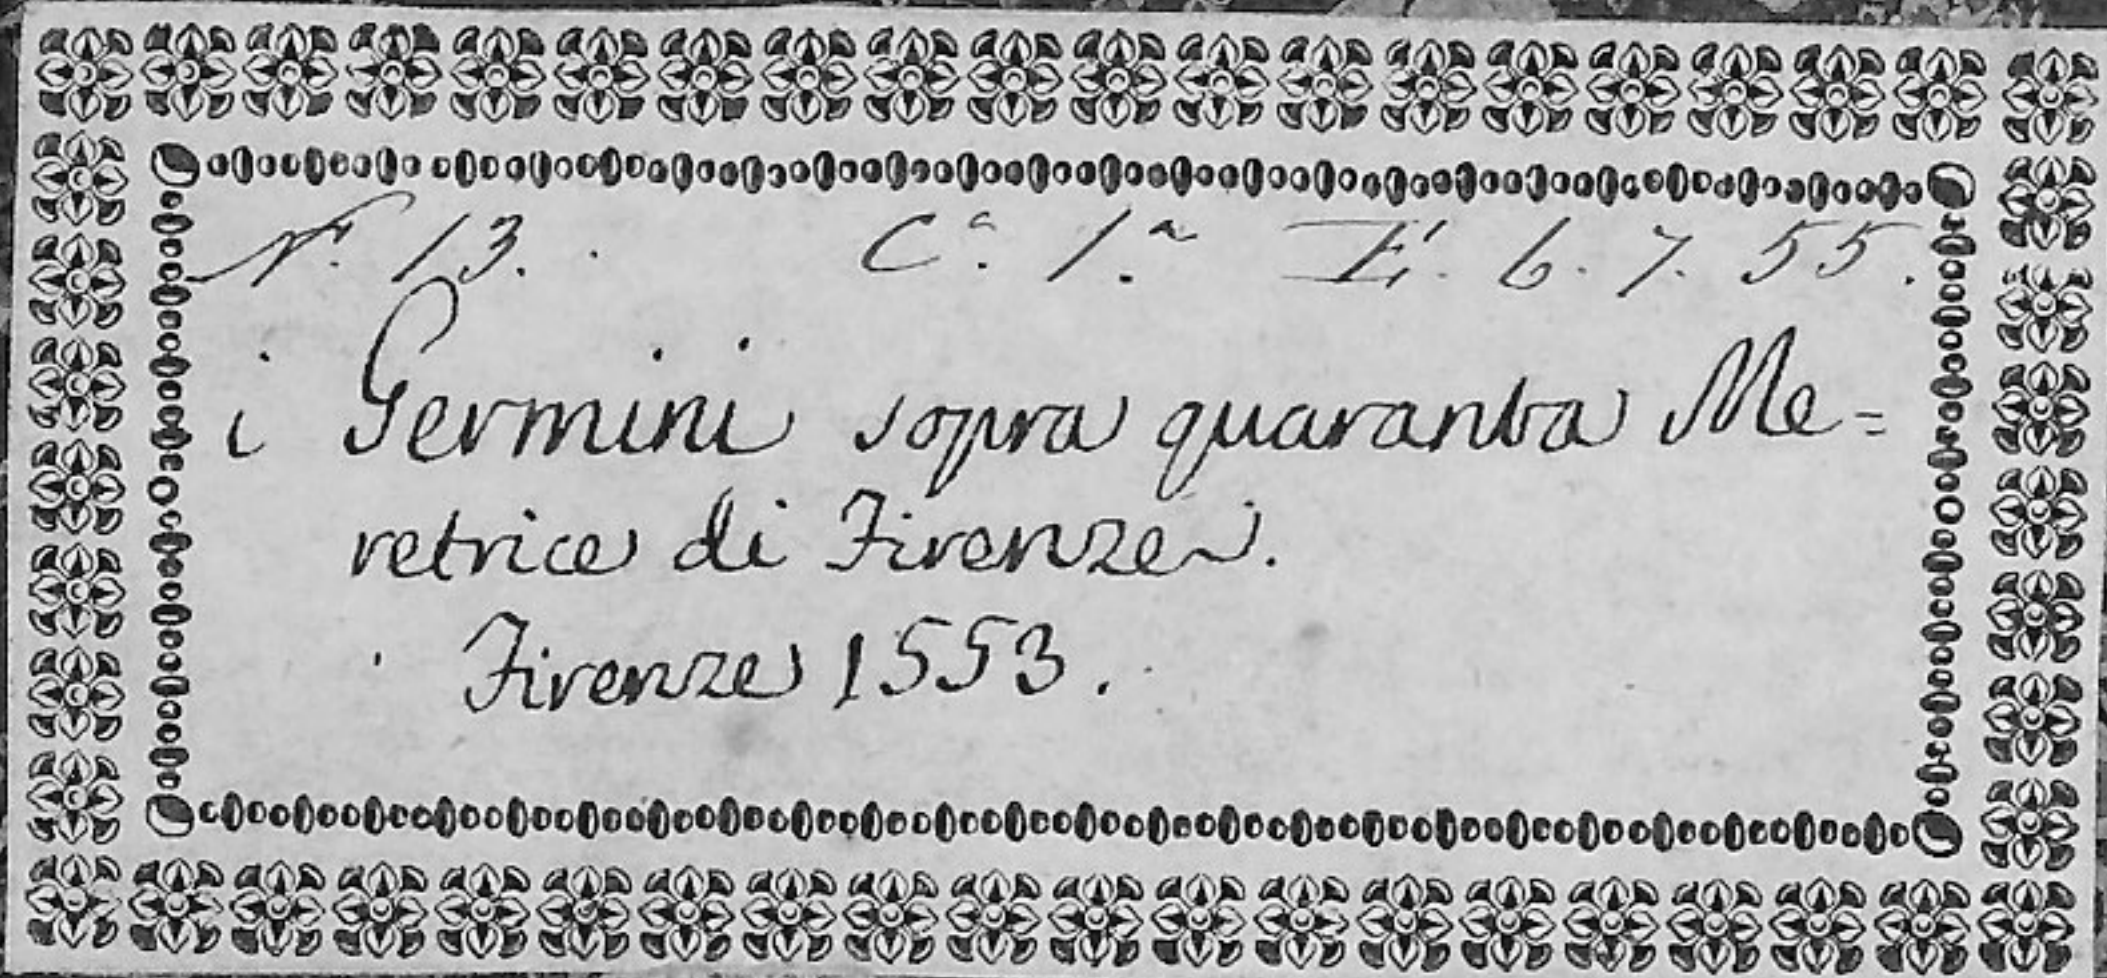 N.º 13. C.ª 1.ª E'. 6. 7. 55.
i Germini sopra quaranta Me=
retrice di Firenze.
Firenze 1553.